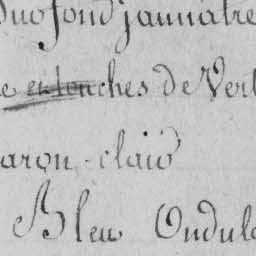 Duo fond jaunatre
e en touches de Vert
aron clair
Bleu Ondulé